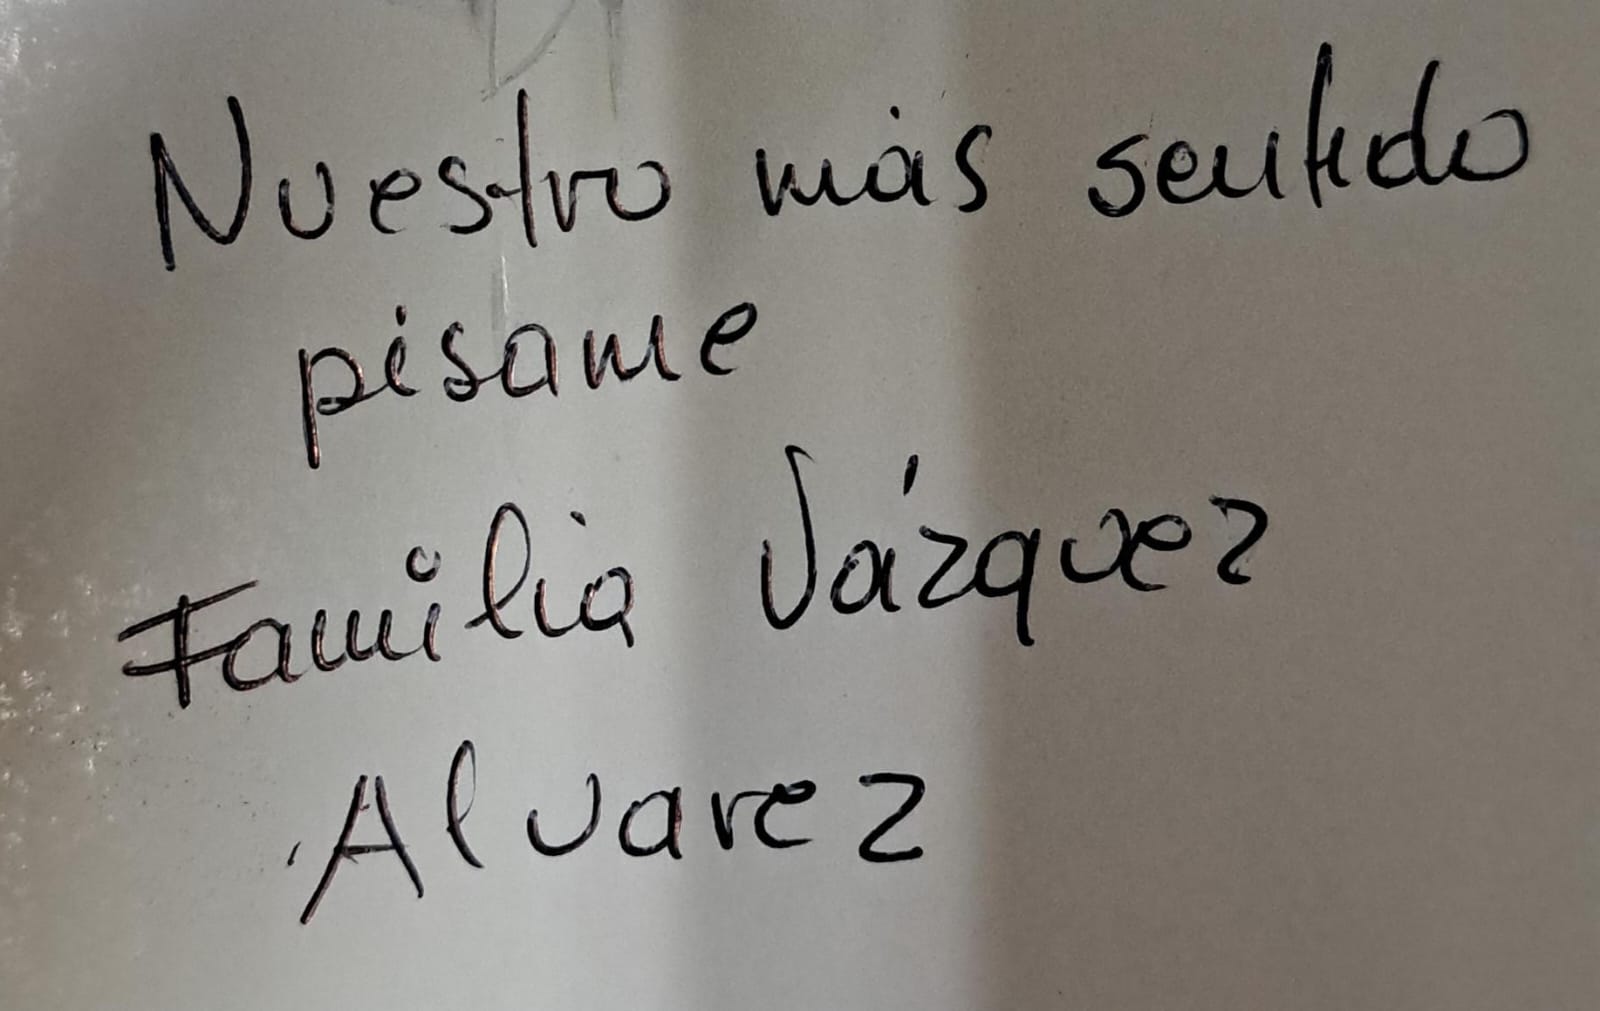 Nuestro más sentido
pésame
Familia Vázquez
Alvarez